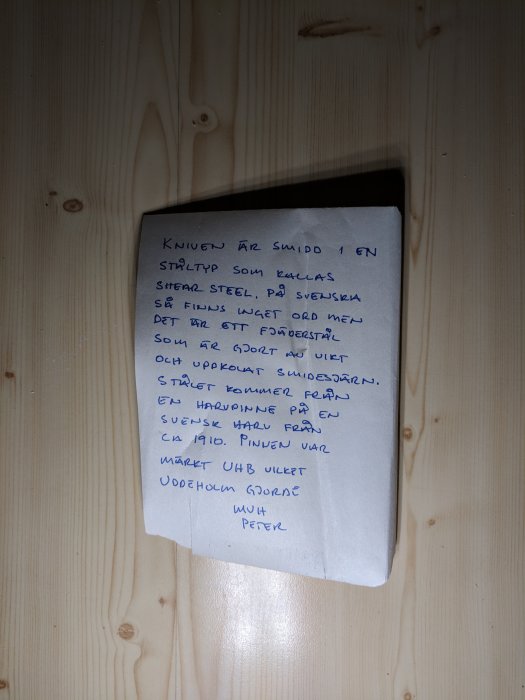 KNIVEN ÄR SMIDD I EN
STÅLTYP SOM KALLAS
SHEAR STEEL. PÅ SVENSKA
SÅ FINNS INGET ORD MEN
DET ÄR ETT FJÄDERSTÅL
SOM ÄR GJORT AV VIKT
OCH UPPKOLAT SMIDESJÄRN.
STÅLET KOMMER FRÅN
EN HARVPINNE PÅ EN
SVENSK HARV FRÅN
CA 1910. PINNEN VAR
MÄRKT UHB VILKET
UDDEHOLM GJORDE
MVH
PETER